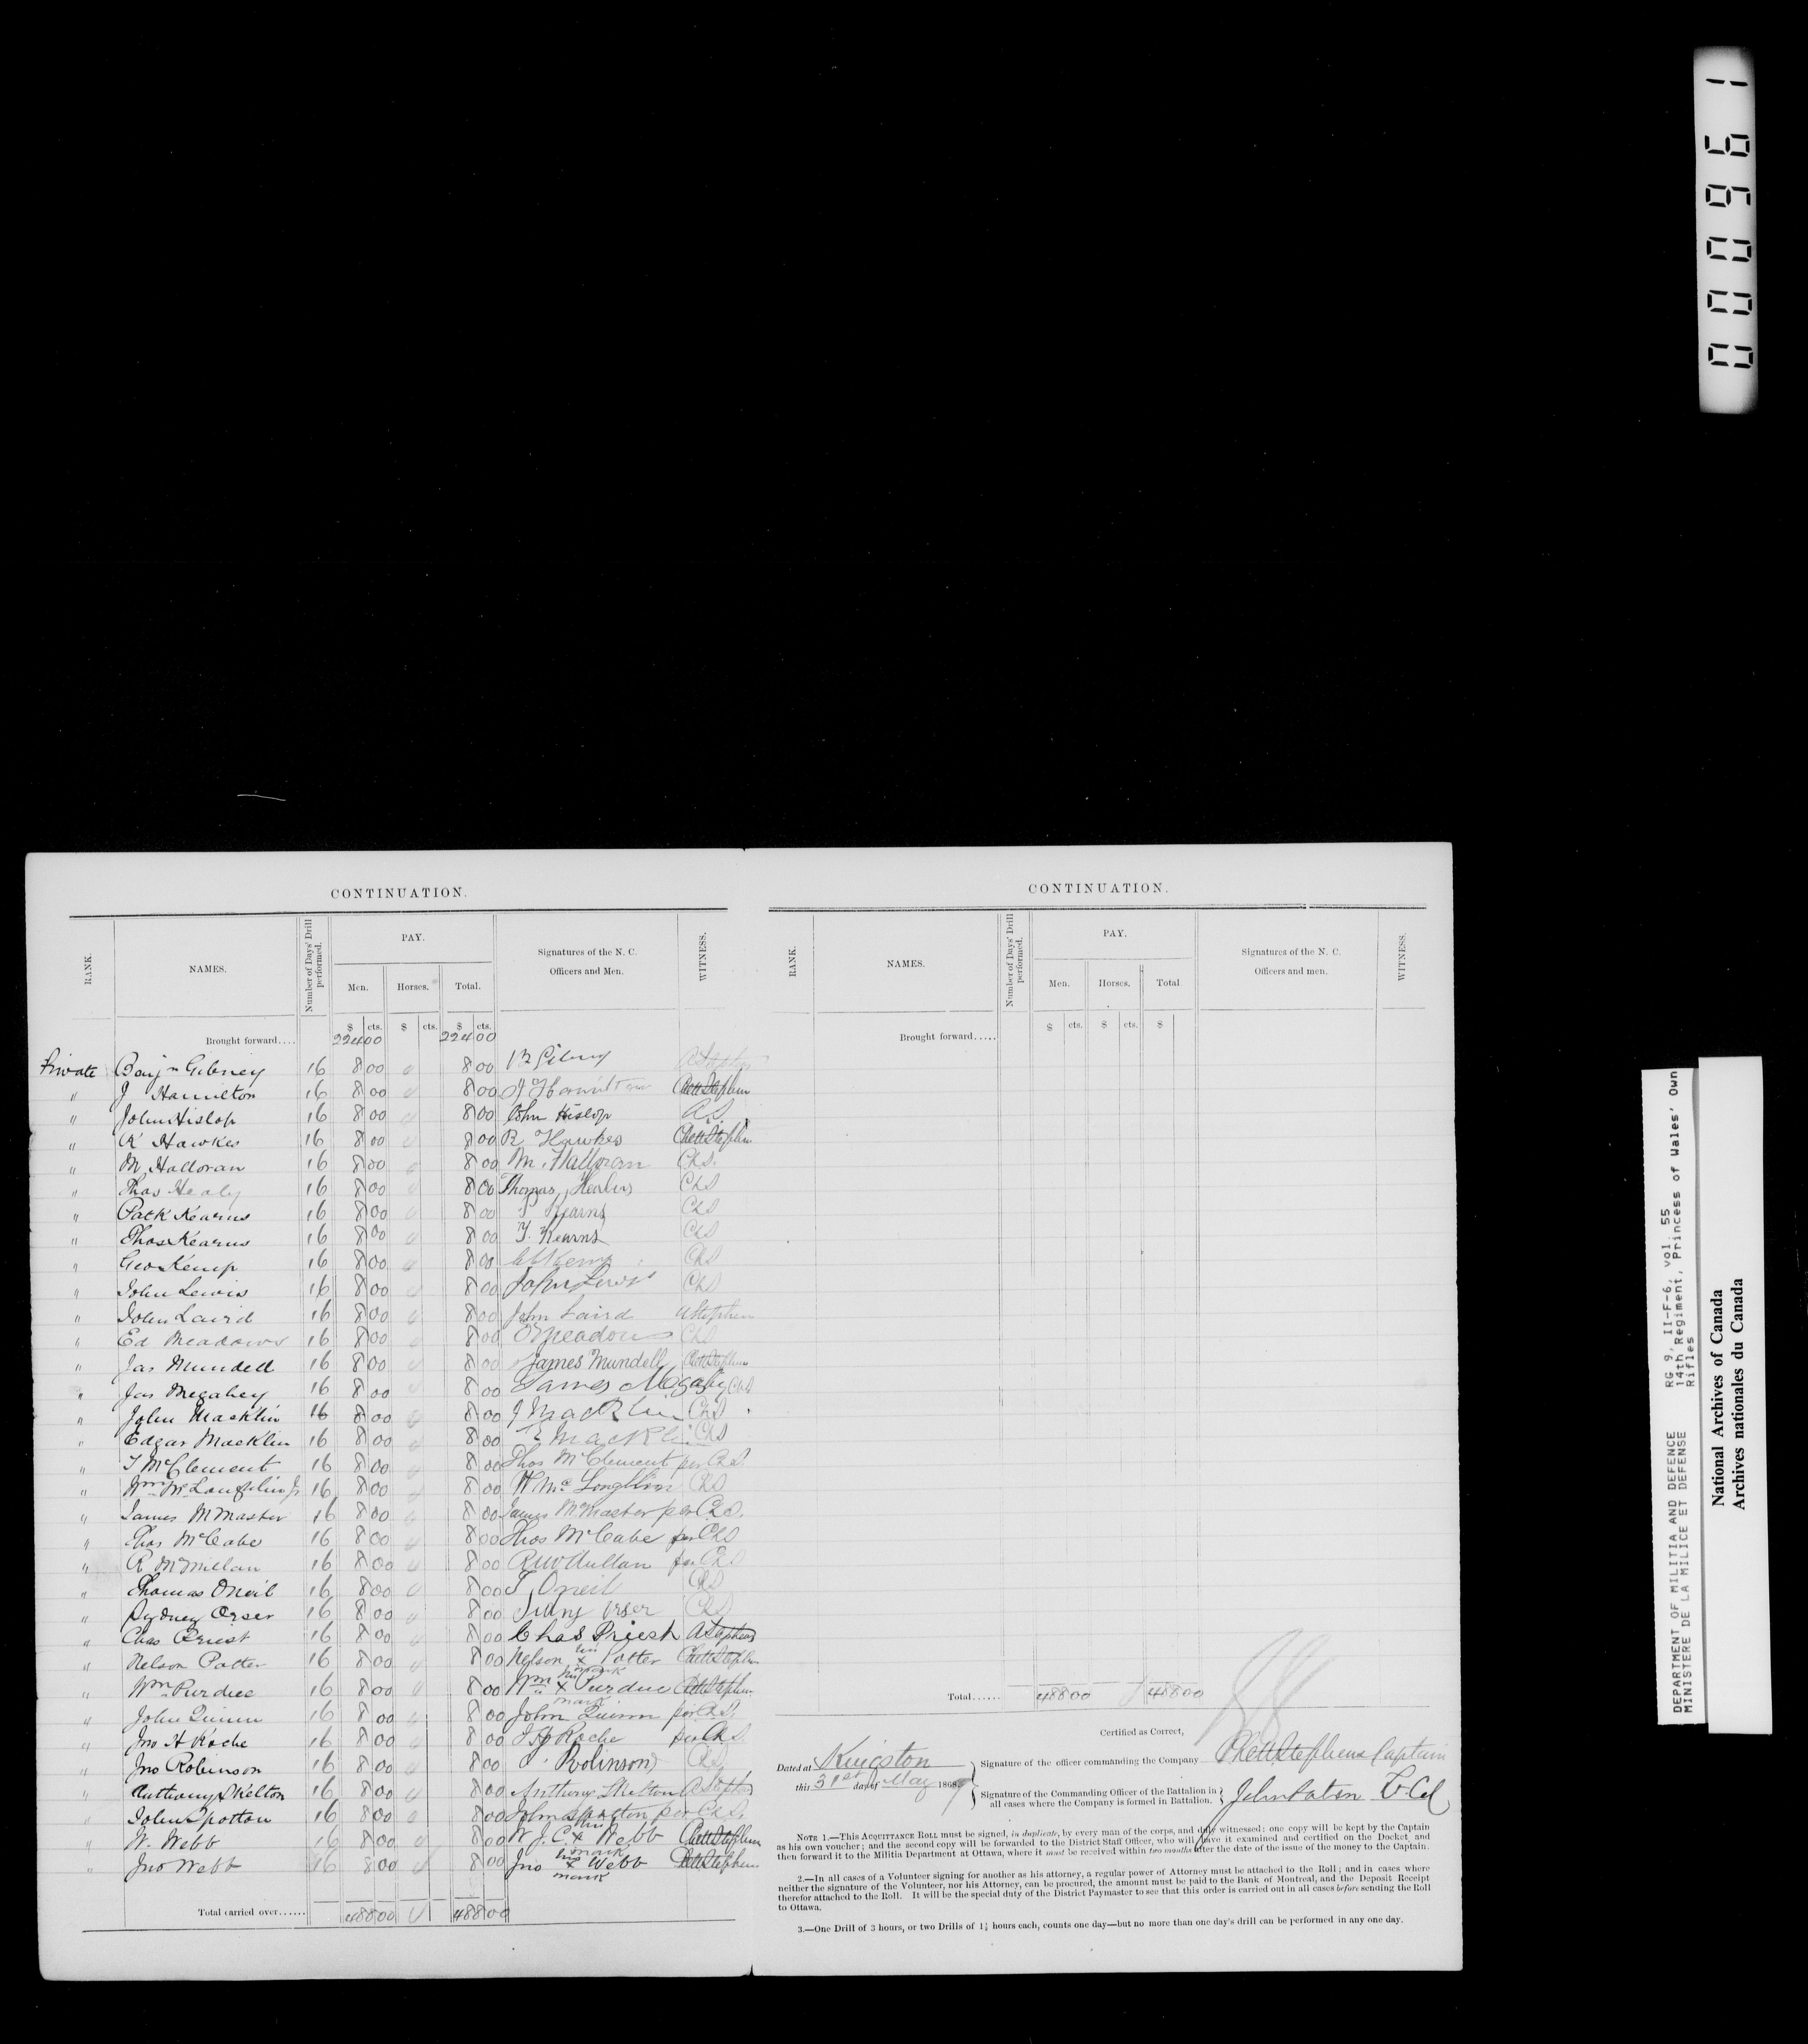 CONTINUATION.
RANK. NAMES. Number of Days' Drill performed. PAY. Signatures of the N. C. Officers and Men. WITNESS.
Men. Horses. Total.
$ cts. $ cts. $ cts.
Brought forward.... 224 00 224 00
Private Benjn Gibney 16 8 00 8 00 B Gibney
" J Hamilton 16 8 00 8 00 J Hamilton
" John Hislop 16 8 00 8 00 John Hislop A.S.
" R Hawkes 16 8 00 8 00 R Hawkes
" M Halloran 16 8 00 8 00 M. Halloran Ch.S.
" Thos Healy 16 8 00 8 00 Thomas Healy ChS
" Patk Kearns 16 8 00 8 00 P Kearns ChS
" Thos Kearns 16 8 00 8 00 T. Kearns ChS
" Geo Kemp 16 8 00 8 00 ChS
" John Lewis 16 8 00 8 00 John Lewis ChS
" John Laird 16 8 00 8 00 John Laird A Stephen
" Ed Meadows 16 8 00 8 00 ChS
" Jas Mundell 16 8 00 8 00 James Mundell
" Jas Megahey 16 8 00 8 00 James ChS
" John Macklin 16 8 00 8 00 J Macklin ChS
" Edgar Macklin 16 8 00 8 00 E Macklin ChS
" T McClement 16 8 00 8 00 Thos McClement per ChS
" Wm McLaughlin Jr 16 8 00 8 00 W Mc Loughlin ChS
" James McMaster 16 8 00 8 00 James McMaster per ChS.
" Thos McCabe 16 8 00 8 00 Thos McCabe per ChS
" R McMillan 16 8 00 8 00 per ChS
" Thomas Oneil 16 8 00 8 00 T Oneil ChS
" Sydney Orser 16 8 00 8 00 Orser ChS
" Chas Priest 16 8 00 8 00 Chas Priest A Stephens
" Nelson Potter 16 8 00 8 00 Nelson his x mark Potter
" Wm Purdue 16 8 00 8 00 Wm his x mark Purdue
" John Quinn 16 8 00 8 00 John Quinn per ChS.
" Jno H Roche 16 8 00 8 00 J H Roche per Ch.S.
" Jno Robinson 16 8 00 8 00 Robinson ChS
" Anthony Skelton 16 8 00 8 00 Anthony Skelton A Stephens
" John Spotton 16 8 00 8 00 John Spotton per ChS.
" W. Webb 16 8 00 8 00 W J.C. his x mark Webb
" Jno Webb 16 8 00 8 00 Jno his x mark Webb
Total carried over...... 488 00 488 00
CONTINUATION.
RANK. NAMES. Number of Days' Drill performed. PAY. Signatures of the N. C. Officers and men. WITNESS.
Men. Horses. Total
$ cts. $ cts. $
Brought forward.....
Total...... 488 00 488 00
Certified as Correct,
Dated at Kingston
this 31st day of May 1869
Signature of the officer commanding the Company Stephens Captain
Signature of the Commanding Officer of the Battalion in all cases where the Company is formed in Battalion. John Paton Lt Col
NOTE 1.—This ACQUITTANCE ROLL must be signed, in duplicate, by every man of the corps, and duly witnessed: one copy will be kept by the Captain
as his own voucher; and the second copy will be forwarded to the District Staff Officer, who will have it examined and certified on the Docket, and
then forward it to the Militia Department at Ottawa, where it must be received within two months after the date of the issue of the money to the Captain.
2.—In all cases of a Volunteer signing for another as his attorney, a regular power of Attorney must be attached to the Roll; and in cases where
neither the signature of the Volunteer, nor his Attorney, can be procured, the amount must be paid to the Bank of Montreal, and the Deposit Receipt
therefor attached to the Roll. It will be the special duty of the District Paymaster to see that this order is carried out in all cases before sending the Roll
to Ottawa.
3.—One Drill of 3 hours, or two Drills of 1½ hours each, counts one day—but no more than one day's drill can be performed in any one day.
000961
DEPARTMENT OF MILITIA AND DEFENCE
MINISTERE DE LA MILICE ET DEFENSE
RG 9, II-F-6, vol. 55
14th Regiment, Princess of Wales' Own
Rifles
National Archives of Canada
Archives nationales du Canada